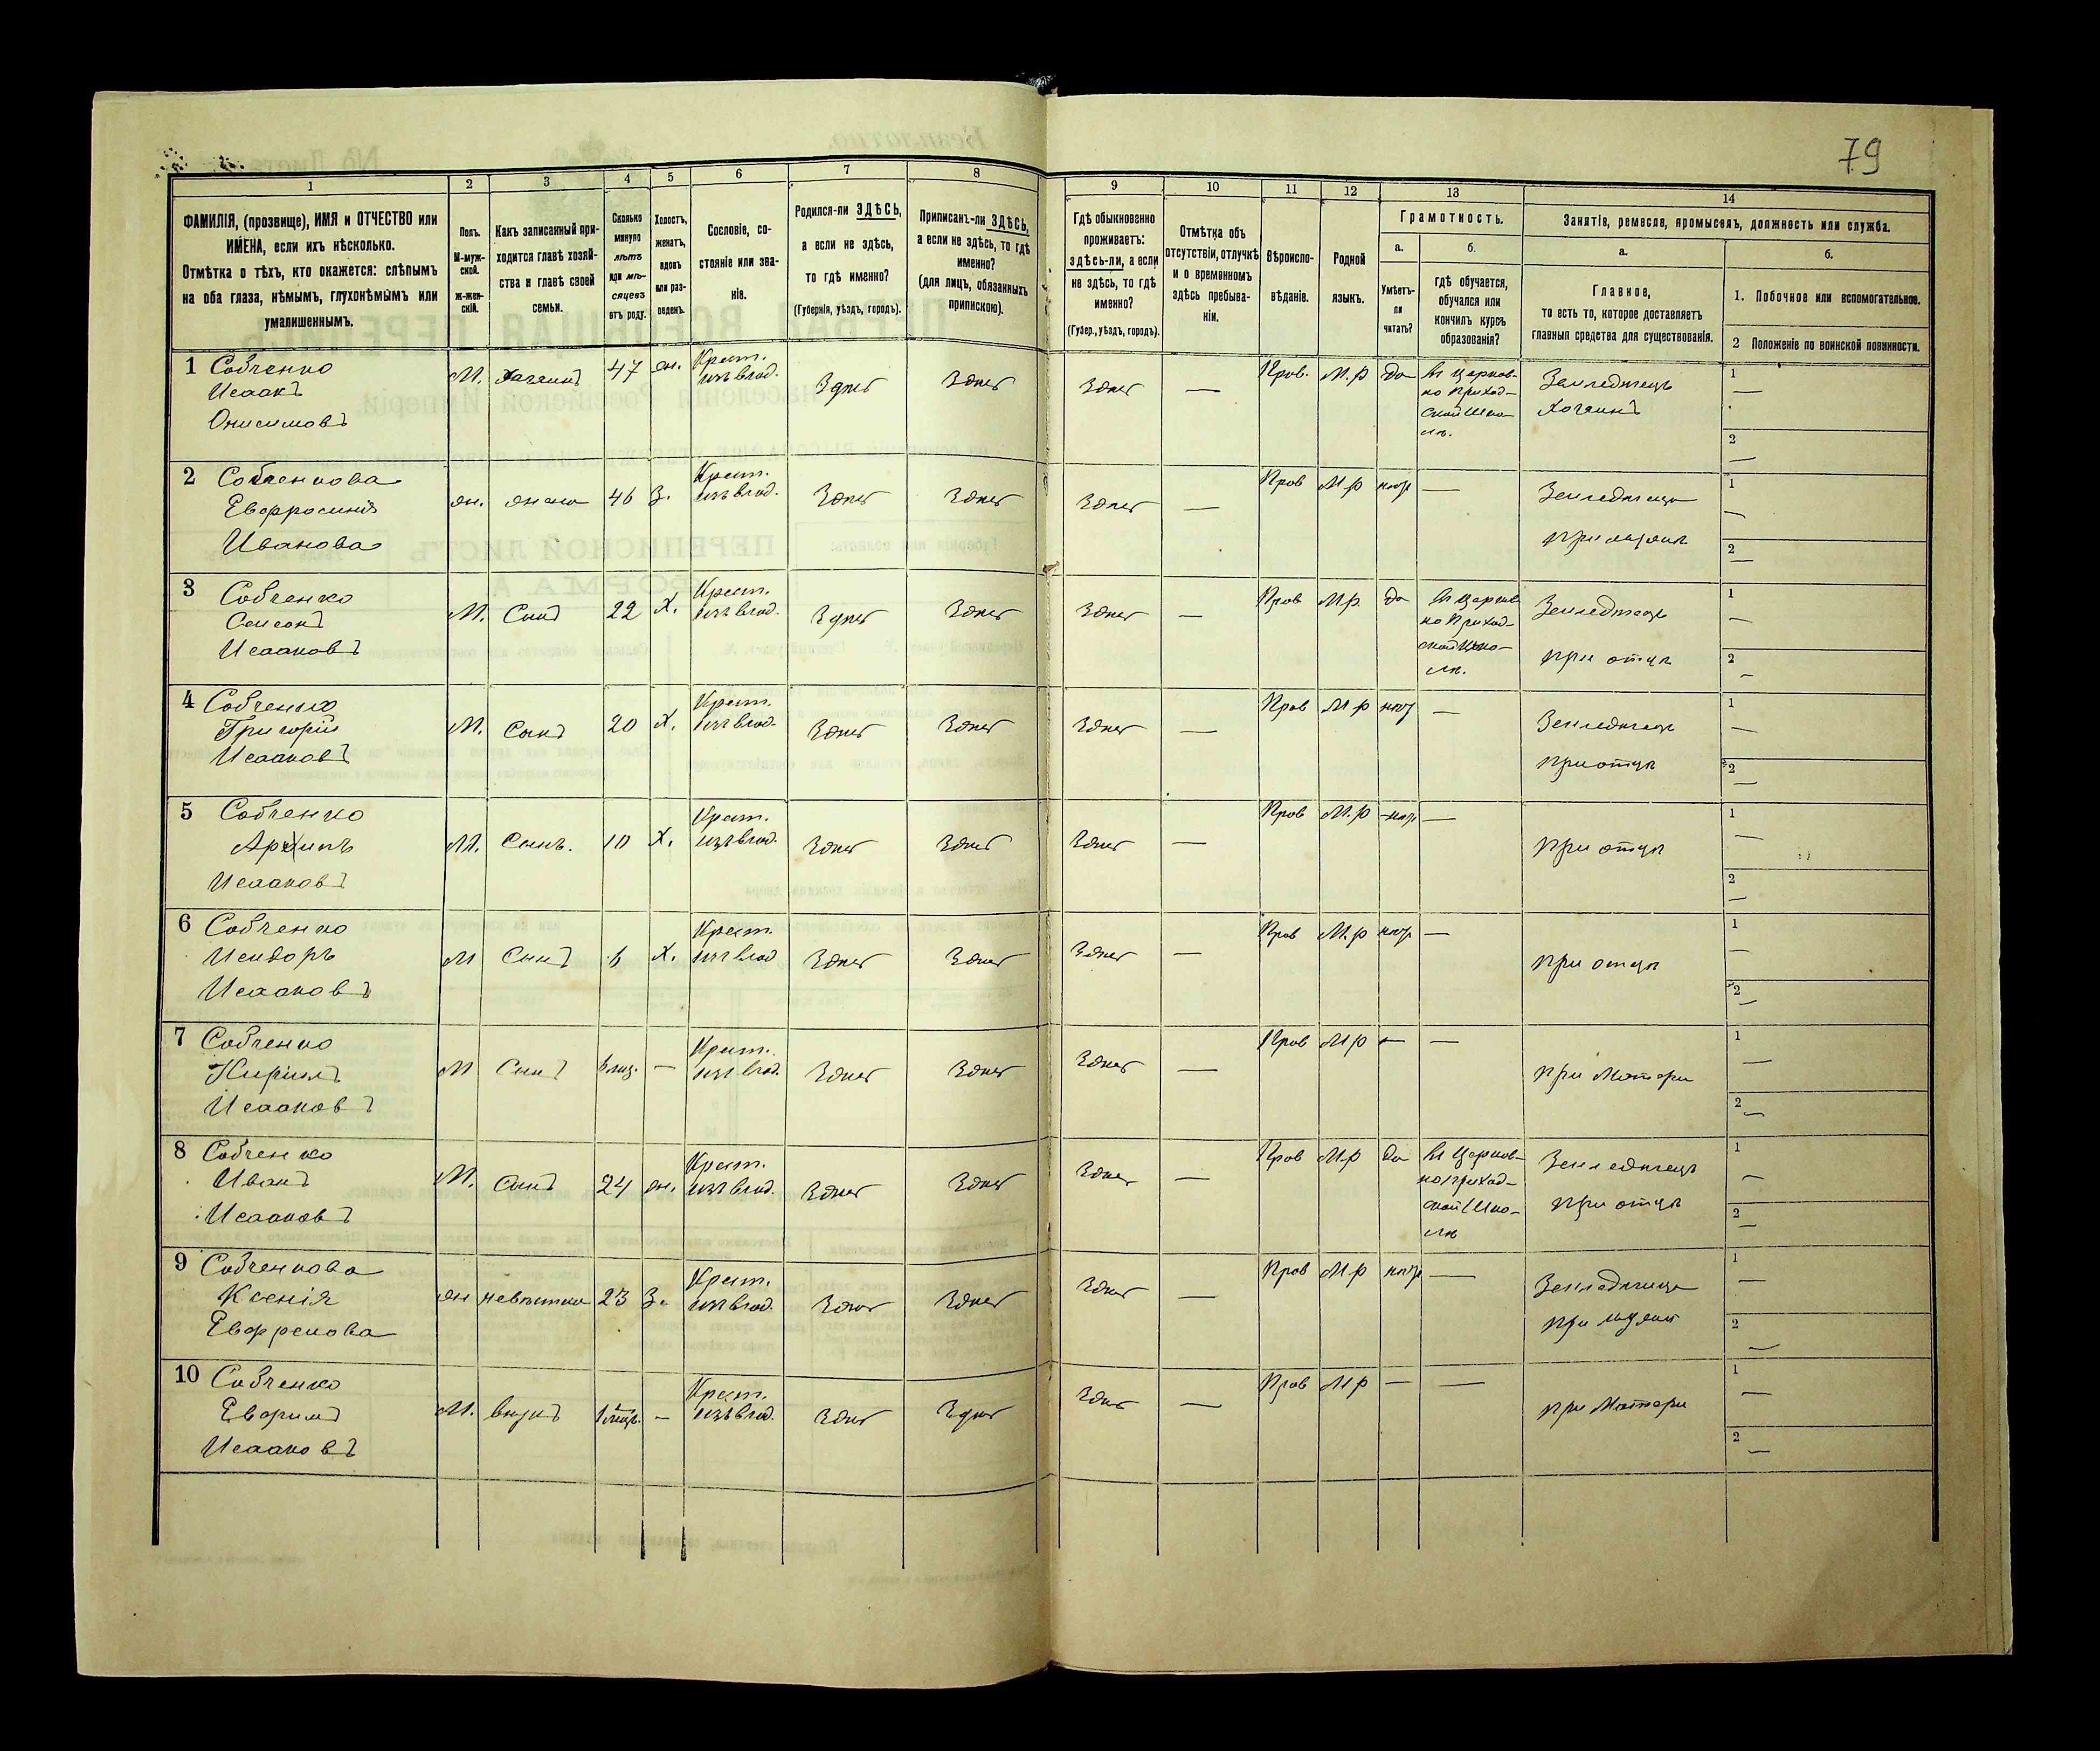 79
1
2
3
4
5
6
7
8
9
10
11
12
13
14
ФАМИЛІЯ, (прозвище), ИМЯ и ОТЧЕСТВО или
ИМЕНА, если ихъ нѣсколько.
Отмѣтка о тѣхъ, кто окажется: слѣпымъ
на оба глаза, нѣмымъ, глухонѣмымъ или
умалишеннымъ.
Полъ.
М-муж-
ской.
ж-жен-
скій.
Какъ записанный при-
ходится главѣ хозяй-
ства и главѣ своей
семьи.
Сколько
минуло
лѣтъ
или мѣ-
сяцевъ
отъ роду.
Холостъ,
женатъ,
вдовъ
или раз-
веденъ.
Сословіе, со-
стояніе или зва-
ніе.
Родился-ли ЗДѢСЬ,
а если не здѣсь,
то гдѣ именно?
(Губернія, уѣздъ, городъ).
Приписанъ-ли ЗДѢСЬ,
а если не здѣсь, то гдѣ
именно?
(для лицъ, обязанныхъ
припискою).
Гдѣ обыкновенно
проживаетъ:
здѣсь-ли, а если
не здѣсь, то гдѣ
именно?
(Губер., уѣздъ, городъ).
Отмѣтка объ
отсутствіи, отлучкѣ
и о временномъ
здѣсь пребыва-
ніи.
Вѣроиспо-
вѣданіе.
Родной
языкъ.
Грамотность.
а.
Умѣетъ-
ли
читать?
б.
гдѣ обучается,
обучался или
кончилъ курсъ
образованія?
Занятія, ремесло, промыселъ, должность или служба.
а.
Главное,
то есть то, которое доставляетъ
главныя средства для существованія.
б.
1. Побочное или вспомогательное.
2 Положеніе по воинской повинности.
1 Собченко
Исаакъ
Онисимовъ
М. Хозяинъ 47 ж. Крест.
изъ влад.
Здѣсь Здѣсь Здѣсь — Пров. М.р Да
въ Церков-
но Приход-
ской Шко-
лѣ.
Земледѣлецъ
Хозяинъ
1 —
2 —
2 Собченкова
Евфросинія
Иванова
ж. жена 46 З. Крест.
изъ влад.
Здѣсь Здѣсь Здѣсь — Пров М р нѣтъ —
Земледѣлица
при мужѣ
1 —
2 —
3 Собченко
Самсонъ
Исааковъ
М. Сынъ 22 Х. Крест.
изъ влад.
Здѣсь Здѣсь Здѣсь — Пров М р. Да
въ Церков-
но Приход-
ской Шко-
лѣ.
Земледѣлецъ
при отцѣ
1 —
2 —
4 Собченко
Григорій
Исааковъ
М. Сынъ 20 Х. Крест.
изъ влад.
Здѣсь Здѣсь Здѣсь — Пров М р нѣтъ —
Земледѣлецъ
при отцѣ
1 —
2 —
5 Собченко
Архипъ
Исааковъ
М. Сынъ. 10 Х. Крест.
изъ влад.
Здѣсь Здѣсь Здѣсь — Пров М.р нѣтъ —
при отцѣ
1 —
2 —
6 Собченко
Исидоръ
Исааковъ
М Сынъ 6 Х. Крест.
изъ влад
Здѣсь Здѣсь Здѣсь — Пров М.р нѣтъ —
при отцѣ
1 —
2 —
7 Собченко
Кирилъ
Исааковъ
М Сынъ 6 мѣц. — Крест.
изъ влад.
Здѣсь Здѣсь Здѣсь — Пров М р — —
при Матери
1 —
2 —
8 Собченко
Иванъ
Исааковъ
М. Сынъ 24 ж. Крест.
изъ влад.
Здѣсь Здѣсь Здѣсь — Пров М.р Да
въ Церков-
но приход-
ской Шко-
лѣ
Земледѣлецъ
при отцѣ
1 —
2 —
9 Собченкова
Ксенія
жн невѣстка 23 З. Крест.
изъ влад.
Здѣсь Здѣсь Здѣсь — Пров М р нѣтъ —
Земледѣлица
при мужѣ
1 —
2 —
10 Собченко
Евфимъ
Исааковъ
М. внукъ — Крест.
изъ влад.
Здѣсь Здѣсь Здѣсь — Пров М р — —
при Матери
1 —
2 —